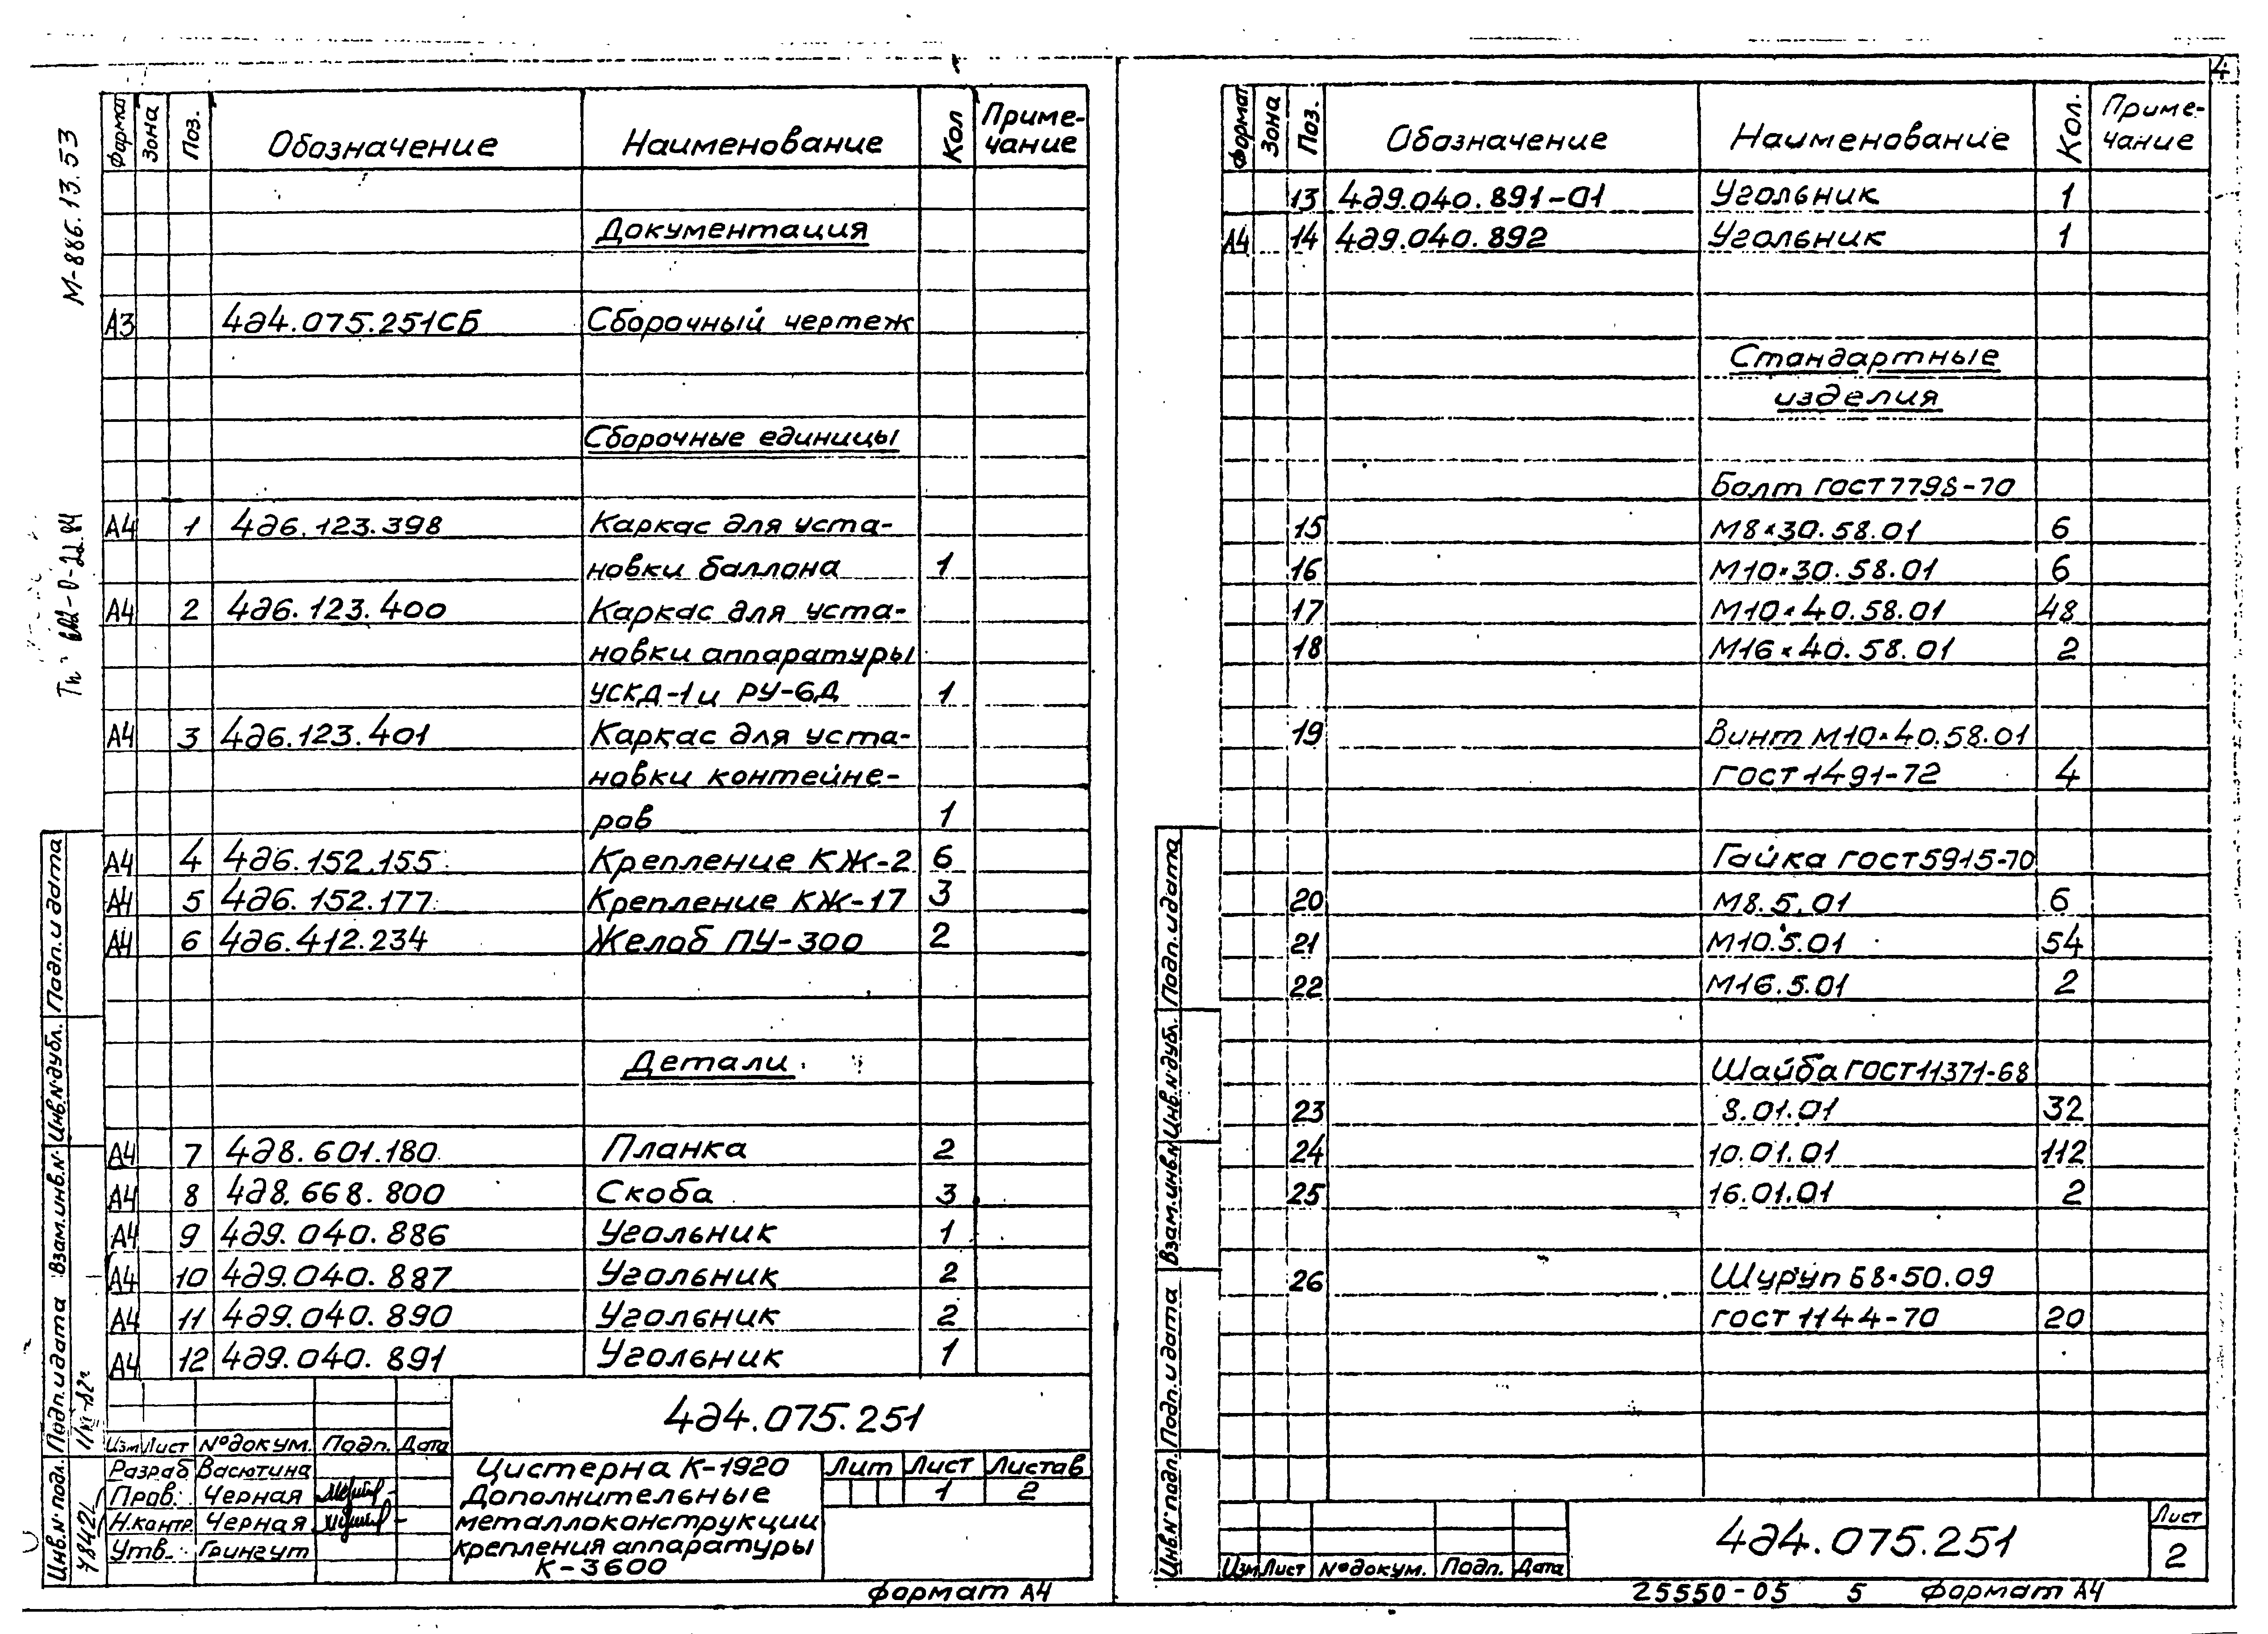 4
М-886.13.53
Формат Зона Поз. Обозначение Наименование Кол Приме-чание
Документация
А3 4д4.075.251СБ Сборочный чертеж
Сборочные единицы
А4 1 4д6.123.398 Каркас для уста-
новки баллона 1
А4 2 4д6.123.400 Каркас для уста-
новки аппаратуры
УСКД-1 и РУ-6Д 1
А4 3 4д6.123.401 Каркас для уста-
новки контейне-
ров 1
А4 4 4д6.152.155 Крепление КЖ-2 6
А4 5 4д6.152.177 Крепление КЖ-17 3
А4 6 4д6.412.234 Желоб ПУ-300 2
Детали
А4 7 4д8.601.180 Планка 2
А4 8 4д8.668.800 Скоба 3
А4 9 4д9.040.886 Угольник 1
А4 10 4д9.040.887 Угольник 2
А4 11 4д9.040.890 Угольник 2
А4 12 4д9.040.891 Угольник 1
4д4.075.251
Изм Лист № докум. Подп. Дата
Разраб Васютина
Пров. Черная
Н.контр. Черная
Утв. Грингут
Цистерна К-1920
Дополнительные
металлоконструкции
крепления аппаратуры
К-3600
Лит Лист Листов
1 2
Формат А4
Подп. и дата
Инв.№ дубл.
Взам.инв.№
Подп. и дата
Инв.№ подл.
Формат Зона Поз. Обозначение Наименование Кол. Приме-чание
13 4д9.040.891-01 Угольник 1
А4 14 4д9.040.892 Угольник 1
Стандартные
изделия
Болт ГОСТ 7798-70
15 М8×30.58.01 6
16 М10×30.58.01 6
17 М10×40.58.01 48
18 М16×40.58.01 2
19 Винт М10×40.58.01
ГОСТ 1491-72 4
Гайка ГОСТ 5915-70
20 М8.5.01 6
21 М10.5.01 54
22 М16.5.01 2
Шайба ГОСТ 11371-68
23 8.01.01 32
24 10.01.01 112
25 16.01.01 2
26 Шуруп Б8×50.09
ГОСТ 1144-70 20
Подп. и дата
Инв.№ дубл.
Взам.инв.№
Подп. и дата
Инв.№ подл.
Изм Лист № докум. Подп. Дата
4д4.075.251
Лист
2
25550-05 5 Формат А4